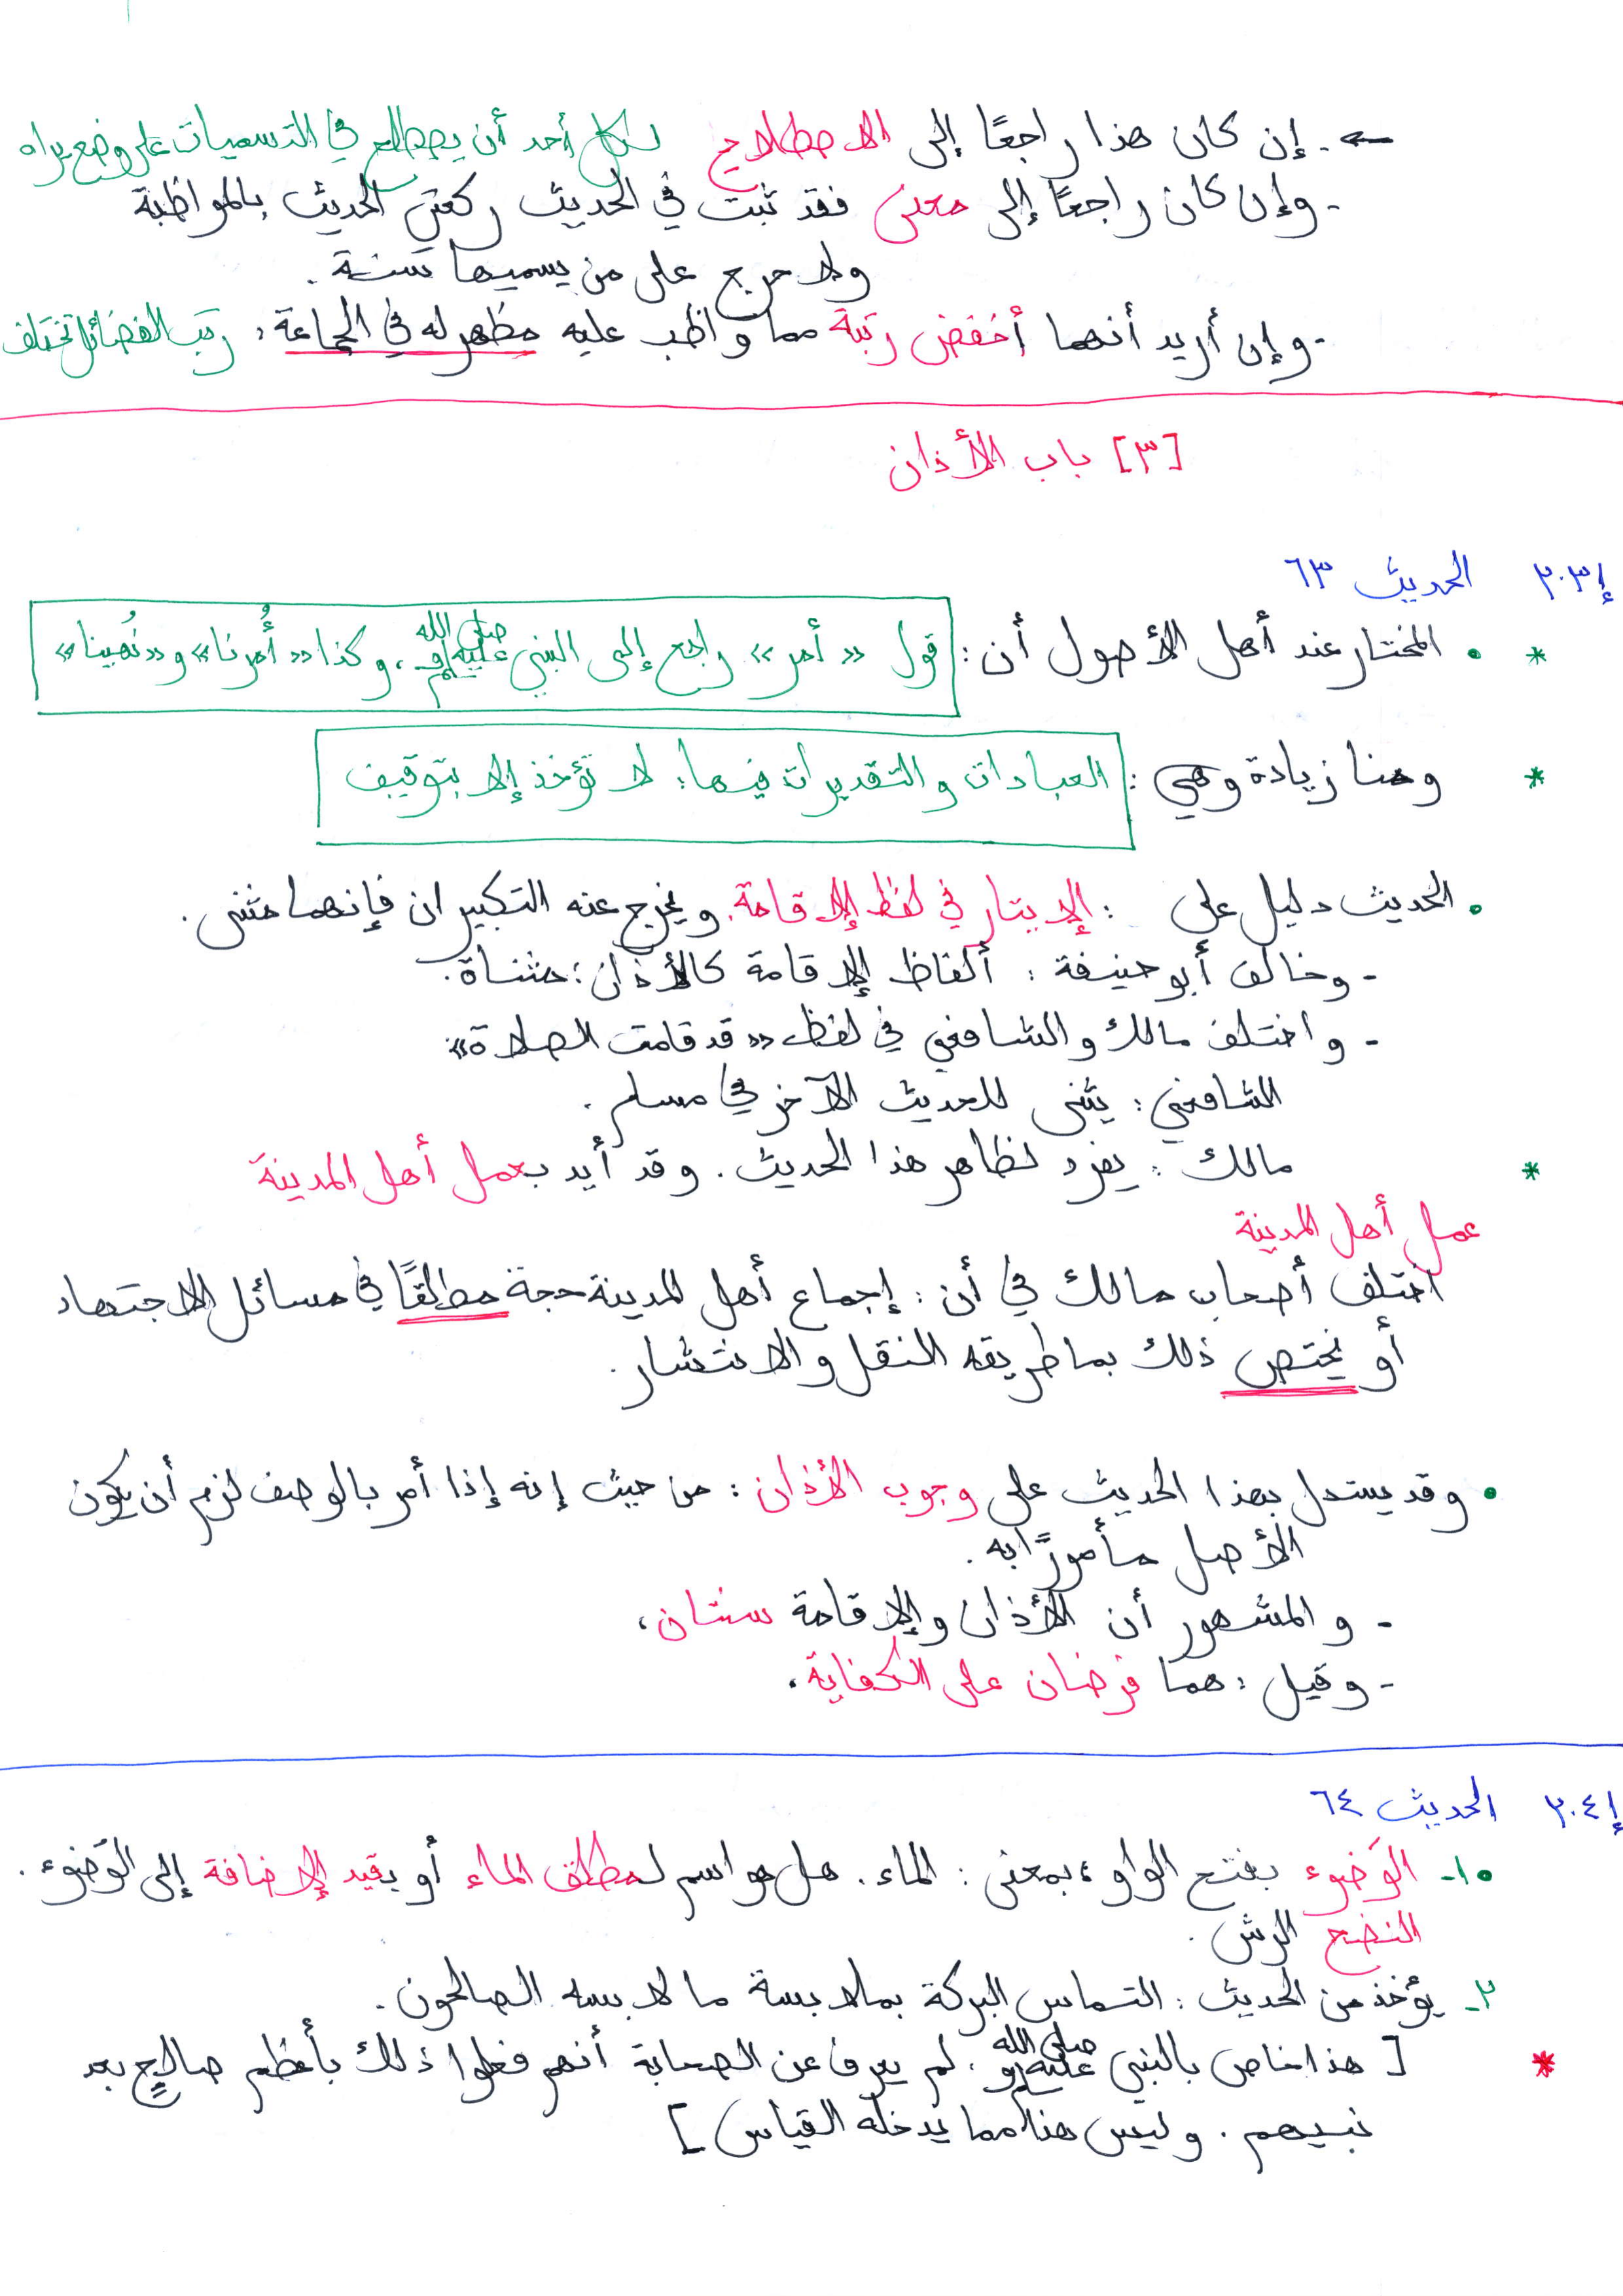 ← - إن كان هذا راجعًا إلى الاصطلاح لكل أحد أن يصطلح في التسميات على وضع يراه
- وإن كان راجعًا إلى معنى فقد ثبت في الحديث ركعتي الحديث بالمواظبة
ولا حرج على من يسميها سنة .
- وإن أريد أنهما أخفض رتبة مما واظب عليه مظهر له في الجماعة ، رتب الفضائل تختلف
[٣] باب الأذان
إ٢٠٣ الحديث ٦٣
* • المختار عند أهل الأصول أن : قول « أمر » راجع إلى النبي صلى الله عليه وسلم ، وكذا « أُمرنا » و« نُهينا »
* وهنا زيادة وهي : العبادات والتقديرات فيها : لا تؤخذ إلا بتوقيف
• الحديث دليل على : الإيتار في لفظ الإقامة . ويخرج عنه التكبيران فإنهما مثنى .
- وخالف أبو حنيفة : ألفاظ الإقامة كالأذان ؛ مثناة .
- واختلف مالك والشافعي في لفظ « قد قامت الصلاة »
الشافعي : يثنى للحديث الآخر في مسلم .
* مالك : يفرد لظاهر هذا الحديث . وقد أيد بعمل أهل المدينة
عمل أهل المدينة
اختلف أصحاب مالك في أن : إجماع أهل المدينة حجة مطلقًا في مسائل الاجتهاد
أو يختص ذلك بما طريقه النقل والانتشار .
• وقد يستدل بهذا الحديث على وجوب الأذان : من حيث إنه إذا أمر بالوصف لزم أن يكون
الأصل مأمورًا به .
- والمشهور أن الأذان والإقامة سنتان ،
- وقيل : هما فرضان على الكفاية .
إ٢٠٤ الحديث ٦٤
• ١- الوَضوء بفتح الواو ، بمعنى : الماء . هل هو اسم لمطلق الماء أو بقيد الإضافة إلى الوَضوء .
النضح الرش .
٢- يؤخذ من الحديث : التماس البركة بملابسة ما لابسه الصالحون .
* [ هذا خاص بالنبي صلى الله عليه وسلم . لم يعرف عن الصحابة أنهم فعلوا ذلك بأعظم صالحٍ بعد
نبيهم . وليس هذا مما يدخله القياس ]